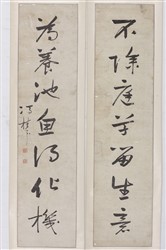 不除庭草留生意
為養池魚得化機